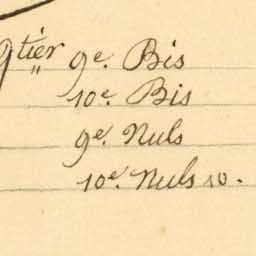 9tier 9e. Bis
10e. Bis
9e. Nuls
10e. Nuls 10.